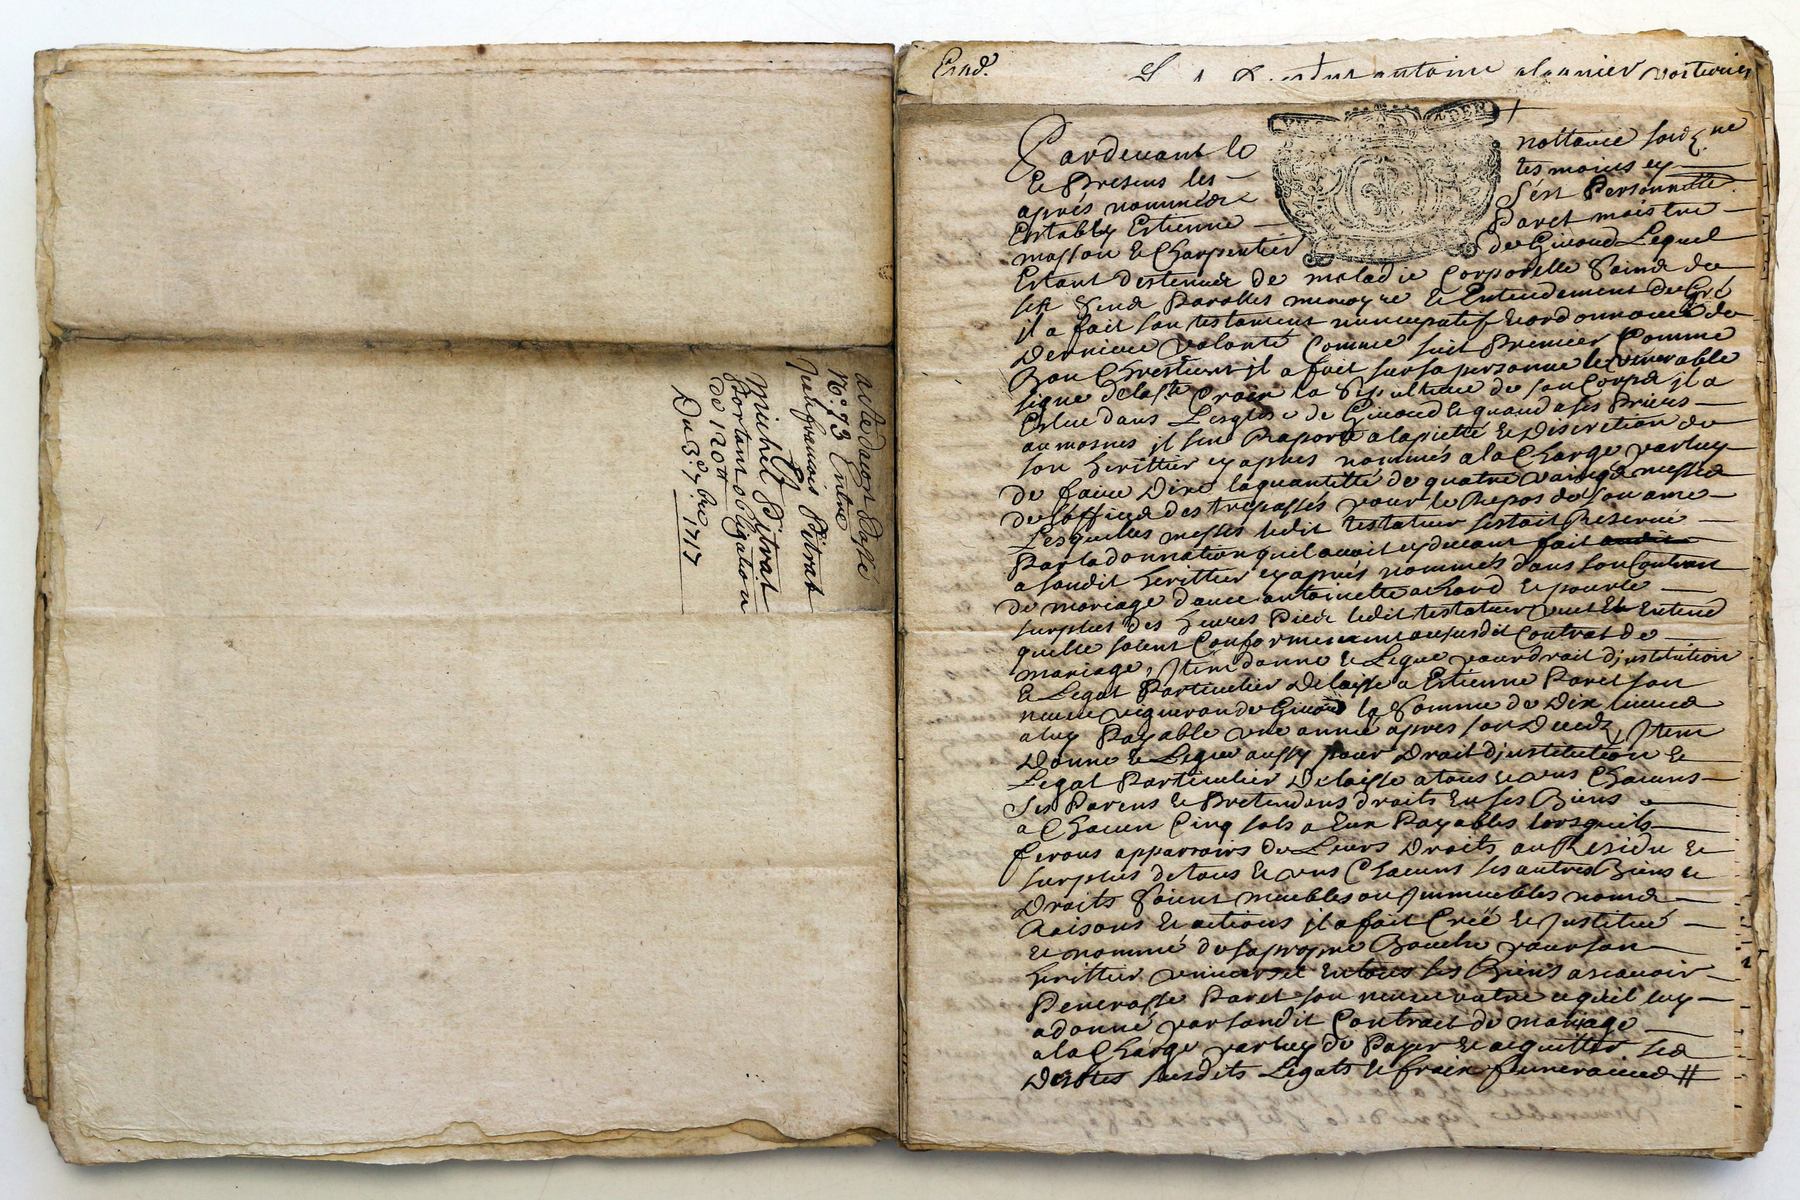 acte dauzon Passé
N.° 73 Entre
Jeulefrancois Pitrat
Et
Michel Pitrat
Portant obligation
de 120 tt
Du 3.e 7.bre 1717
antoine
Pardevant le nottaire soubz.ne
Et Presens les tesmoins cy
aprés nommées S'ést Personnelle.
Estably Estienne Paret maistre
masson & Charpentier de Givord Lequel
Estant destenue de maladie Corporelle Saind de
ses Send Parolles memoyre & Entendement de Gré
il a fait son testament nuncupatif & ordonnance de
Derniere volonté Comme suit Premier Comme
Bon Chrestient il a fait sur sa personne le venerable
signe de la Ste Croix la Sepulture de son Corps il a
Eslue dans L'esglise de Givord & quand a ses Prieres
aumosnes il s'en Raporte a la pietté & Discretion de
son heritier cy aprés nommés a la Charge par luy
de faire Dire la quantitté de quatre vaingd messed
de l'office des trepassés pour le Repos de son ame
Lesquelles messes ledit testateur s'estoit Reservé
Par la donnation qu'il avoit cy devant fait
a sondit heritier cy aprés nommés dans son Contrat
de mariage d'avec antoinette achard & pour le
surplus des heures Pied ledit testateur veut Et Entend
quelle soient Conformement au susdit Contrat de
mariage, Item donne & Legue pour droit d'institution
& Legat Particulier Delaisse a Estienne Paret son
neveu vigneron de Givord la Somme de Dix livred
a luy Payable une année apres son Deced, Item
Donne & Legue aussy pour Droit d'institution &
Legat Particulier Delaisse a tous & uns Chacuns
ses Parens & Pretendans droits En ses Biens
a Chacun Cinq sols a Eux Payables lorsquils
feront apparroirs de Leurs Droits au Residu &
surplus de tous & uns Chacuns ses autres Biens &
Droits Soient meubles ou Immeubles nomd
Raisons & actions il a fait Créé & Institué
& nommé de sa propre Bouche pour son
heritier universel En tous ses Biens ascavoir
Pencrasse Paret son neveu outre cequil luy
a donné par sondit Contrat de mariage
a la Charge par luy de Payer & acquitter sed
Debtes susdits Légats & fraix funeraired //